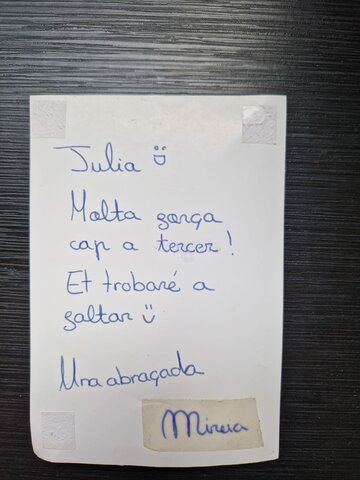 Julia :D
Molta força
cap a tercer!
Et trobaré a
faltar :)
Una abraçada
Mireia